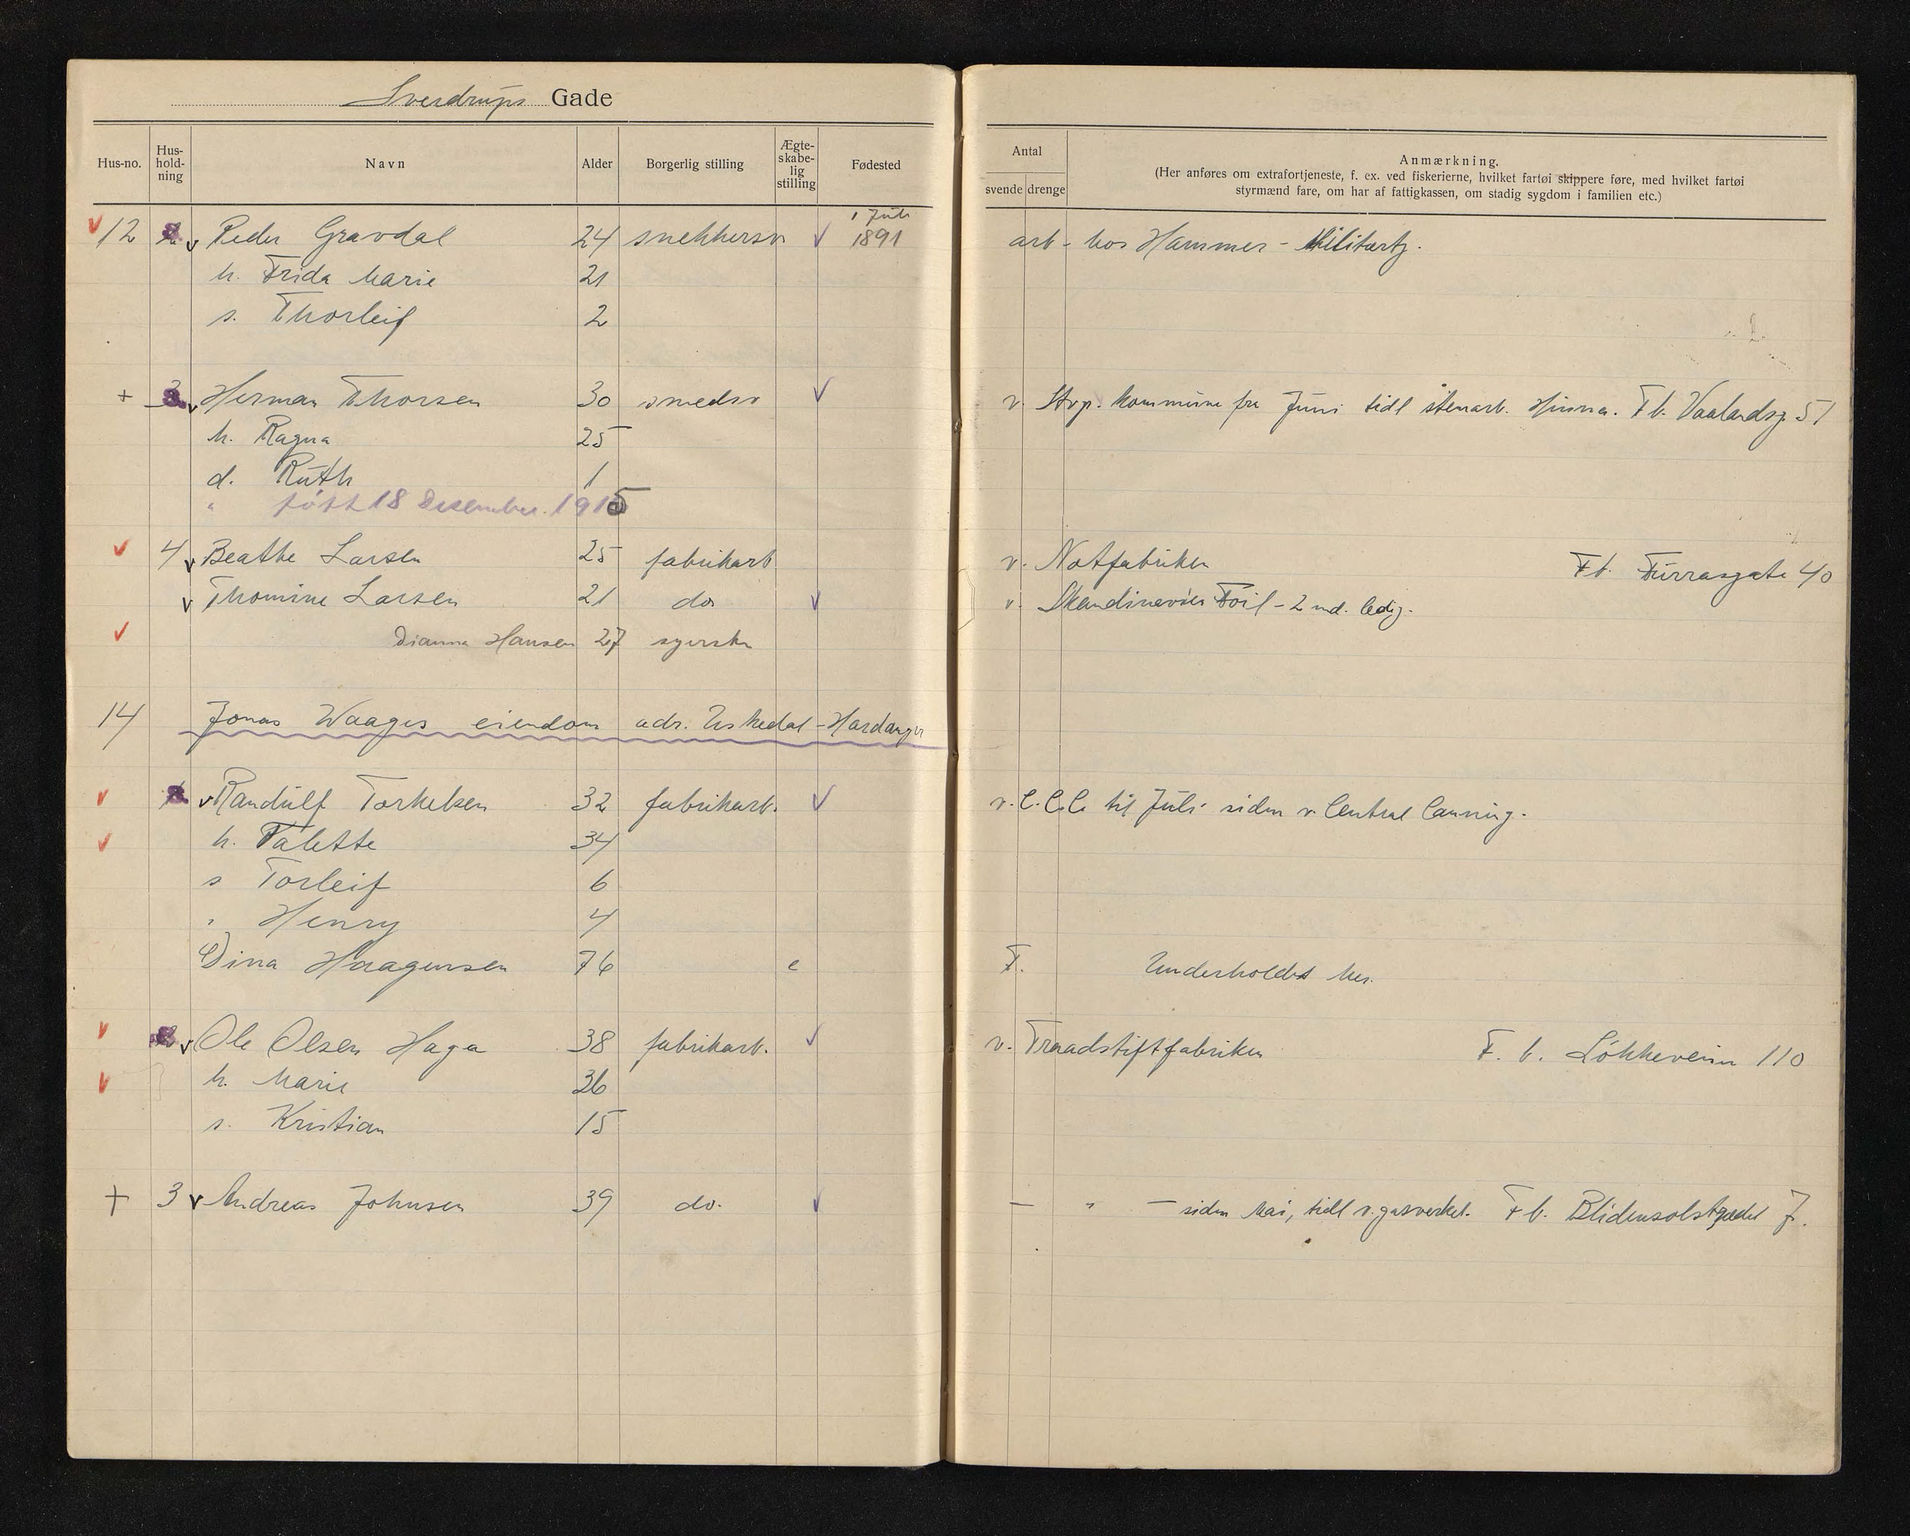 Sverdrups Gade
Hus-no. Hus-hold-ning Navn Alder Borgerlig stilling Ægte-skabe-lig stilling Fødested
Antal
svende drenge
Anmærkning.
(Her anføres om extrafortjeneste, f. ex. ved fiskerierne, hvilket fartøi skippere føre, med hvilket fartøi
styrmænd fare, om har af fattigkassen, om stadig sygdom i familien etc.)
1 Juli
12 Peder Gravdal 24 snekkersv 1891 arb. hos Hammer - Militærtj.
h. Frida Marie 21
s. Thorleif 2
+ 3 v Herman Thorsen 30 smedsv v. Stvg. kommune fra Juni tidl stenarb. Hinna. F b. Vaalandsg. 51
h. Ragna 25
d. Ruth 1
" født 18 Desember. 1915
4 v Beathe Larsen 25 fabrikarb v. Notfabriken F b. Furrasgate 40
v Thomine Larsen 21 do v. Skandinavien Foil - 2 md. ledig.
Dianna Hansen 27 syerske
14 Jonas Waages eiendom adr. Uskedal - Hardanger
v Randulf Torkelsen 32 fabrikarb. v. C. C. C. til Juli siden v. Central Canning.
h. Valette 34
s Torleif 6
" Henry 4
Dina Haagensen 76 e F. Underholdes her.
v Ole Olsen Haga 38 fabrikarb. v. Traadstiftfabriken F. b. Løkkeveien 110
h. Marie 36
s. Kristian 15
+ 3 v Andreas Johnsen 39 do. — " — siden Mai, tidl v. gasverket. F b. Blidensolstrædet 7.